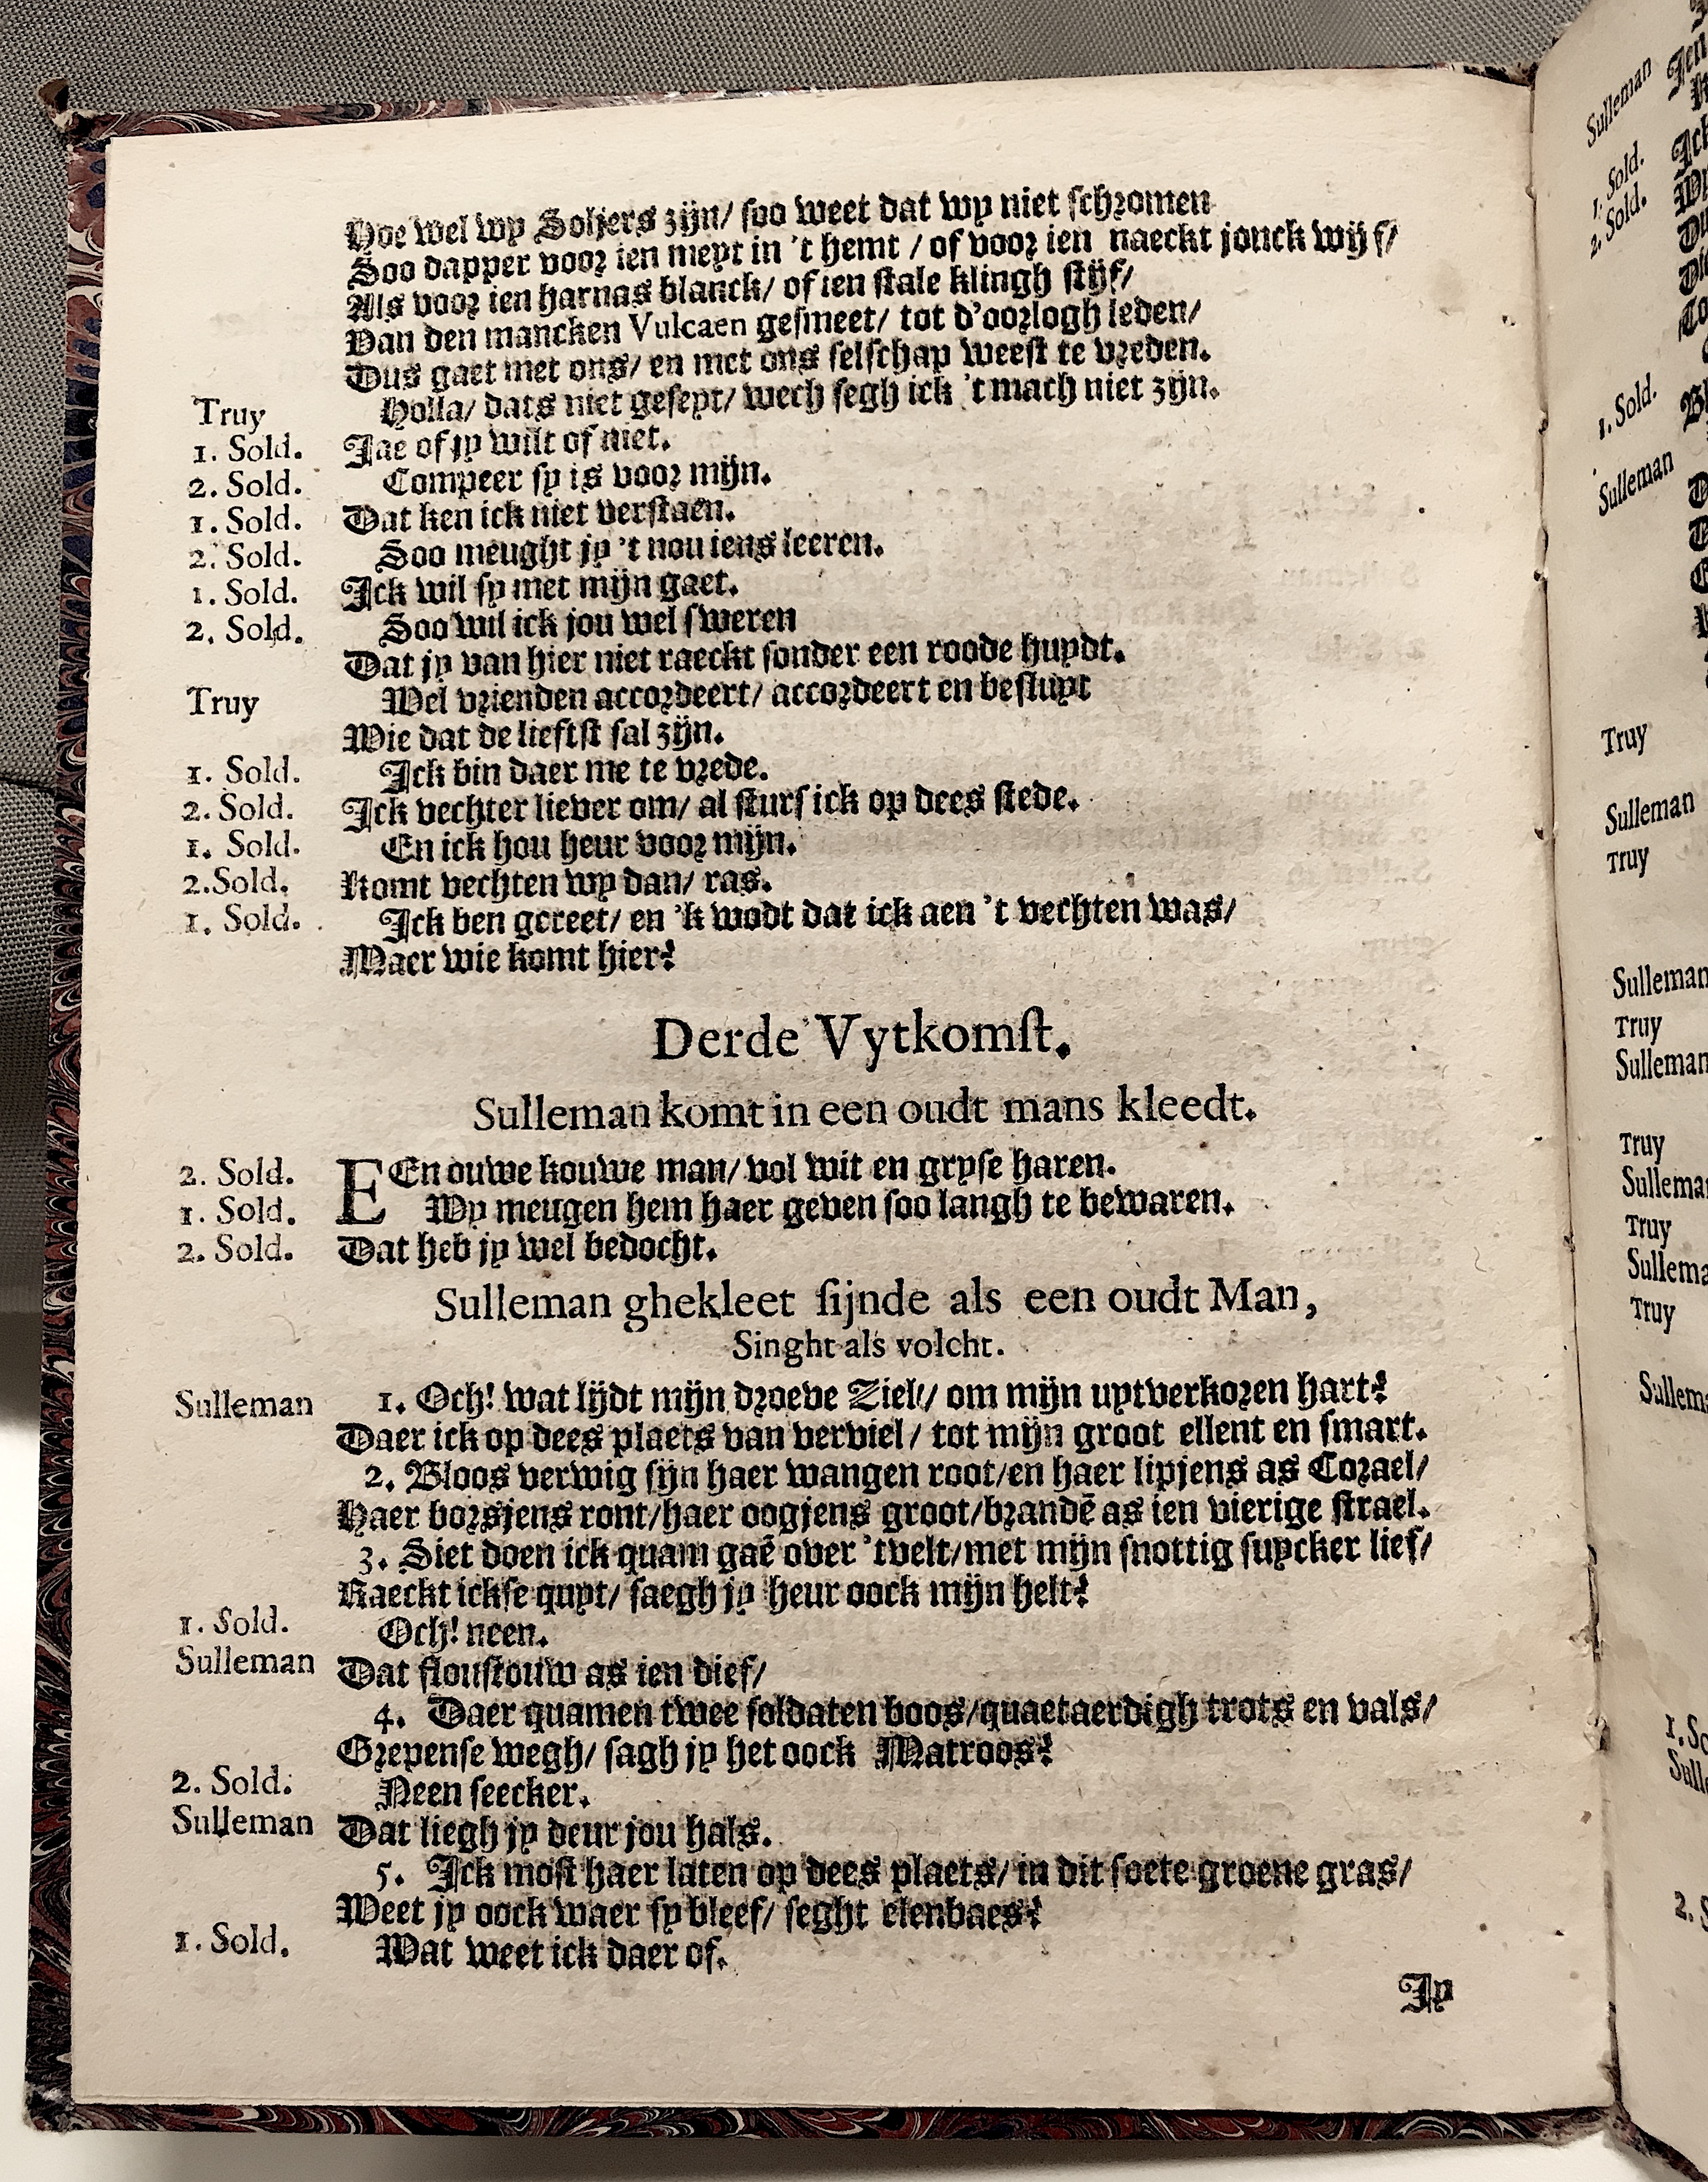 Hoe wel wy Soljers zijn/ soo weet dat wy niet schromen
Soo dapper voor ien meyt in 't hemt / of voor ien naeckt jonck wijf/
Als voor ien harnas blanck/ of ien stale klingh stijf/
Van den mancken Vulcaen gesmeet/ tot d'oorlogh leden/
Dus gaet met ons/ en met ons selschap weest te vreden.
Truy Holla/ dats niet geseyt/ wech segh ick 't mach niet zijn.
1. Sold. Jae of jy wilt of niet.
2. Sold. Compeer sy is voor mijn.
1. Sold. Dat ken ick niet verstaen.
2. Sold. Soo meught jy 't nou iens leeren.
1. Sold. Ick wil sy met mijn gaet.
2. Sold. Soo wil ick jou wel sweren
Dat jy van hier niet raeckt sonder een roode huydt.
Truy Wel vrienden accordeert/ accordeert en besluyt
Wie dat de liefst sal zijn.
1. Sold. Ick bin daer me te vrede.
2. Sold. Ick vechter liever om/ al sturf ick op dees stede.
1. Sold. En ick hou heur voor mijn.
2. Sold. Komt vechten wy dan/ ras.
1. Sold. Ick ben gereet/ en 'k wodt dat ick aen 't vechten was/
Maer wie komt hier?
Derde Vytkomst.
Sulleman komt in een oudt mans kleedt.
2. Sold. EEn ouwe kouwe man/ vol wit en gryse haren.
1. Sold. Wy meugen hem haer geven soo langh te bewaren.
2. Sold. Dat heb jy wel bedocht.
Sulleman ghekleet sijnde als een oudt Man,
Singht als volcht.
Sulleman 1. Och! wat lijdt mijn droeve Ziel/ om mijn uytverkoren hart?
Daer ick op dees plaets van verviel/ tot mijn groot ellent en smart.
2. Bloos verwig sijn haer wangen root/en haer lipjens as Corael/
Haer borsjens ront/haer oogjens groot/brandē as ien vierige strael.
3. Siet doen ick quam gaē over 'tvelt/met mijn snottig suycker lief/
Raeckt ickse quyt/ saegh jy heur oock mijn helt?
1. Sold. Och! neen.
Sulleman Dat floustouw as ien dief/
4. Daer quamen twee soldaten boos/quaetaerdigh trots en vals/
Grepense wegh/ sagh jy het oock Matroos?
2. Sold. Neen seecker.
Sulleman Dat liegh jy deur jou hals.
5. Ick most haer laten op dees plaets/ in dit soete groene gras/
Weet jy oock waer sy bleef/ seght elenbaes?
1. Sold. Wat weet ick daer of.
Jy
Sulleman
1. Sold.
2. Sold.
1. Sold.
Sulleman
Truy
Sulleman
Truy
Sulleman
Truy
Sulleman
Truy
Truy
Truy